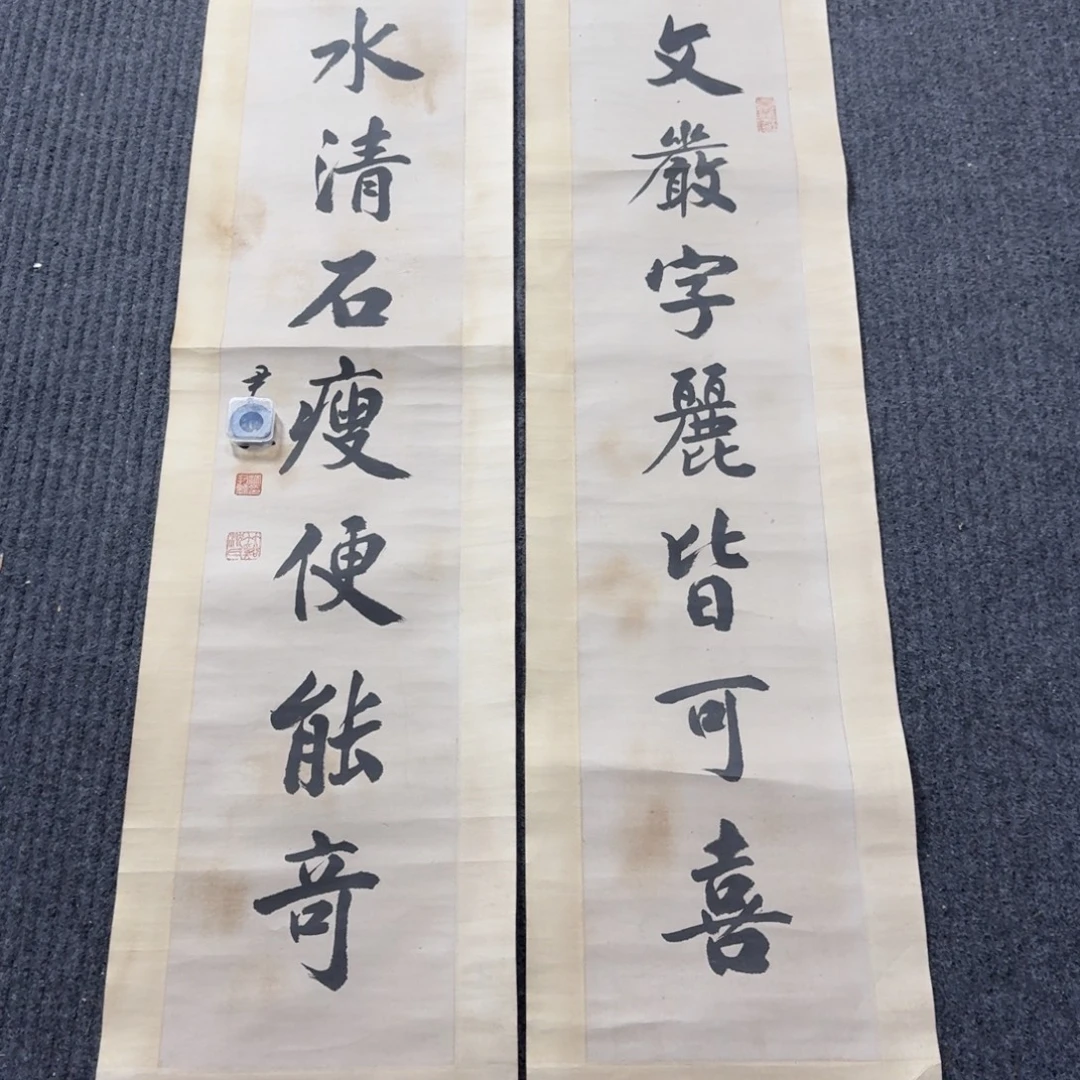 文嚴字麗皆可喜
水清石瘦便能奇
尹